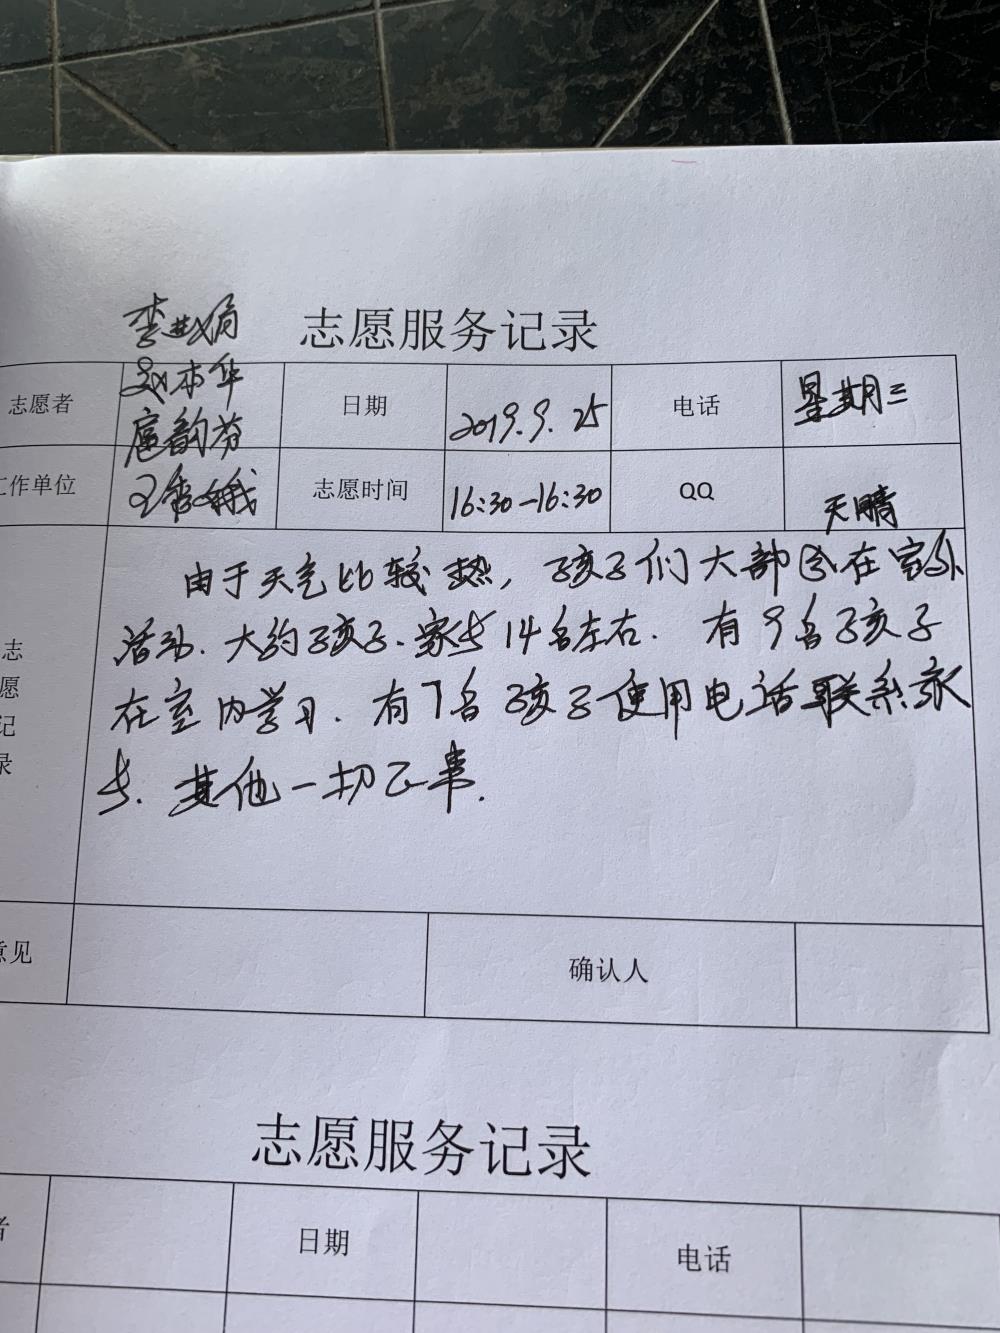 志愿服务记录
志愿者
赵本华
扈韵芬
日期
2019.9.25
电话
星期三
工作单位
志愿时间
16:30-16:30
QQ
天晴
志愿记录
由于天气比较热，孩子们大部分在室外
活动.大约孩子.家长14名左右.有9名孩子
在室内学习.有7名孩子使用电话联系家
长.其他一切正常.
意见
确认人
志愿服务记录
者
日期
电话